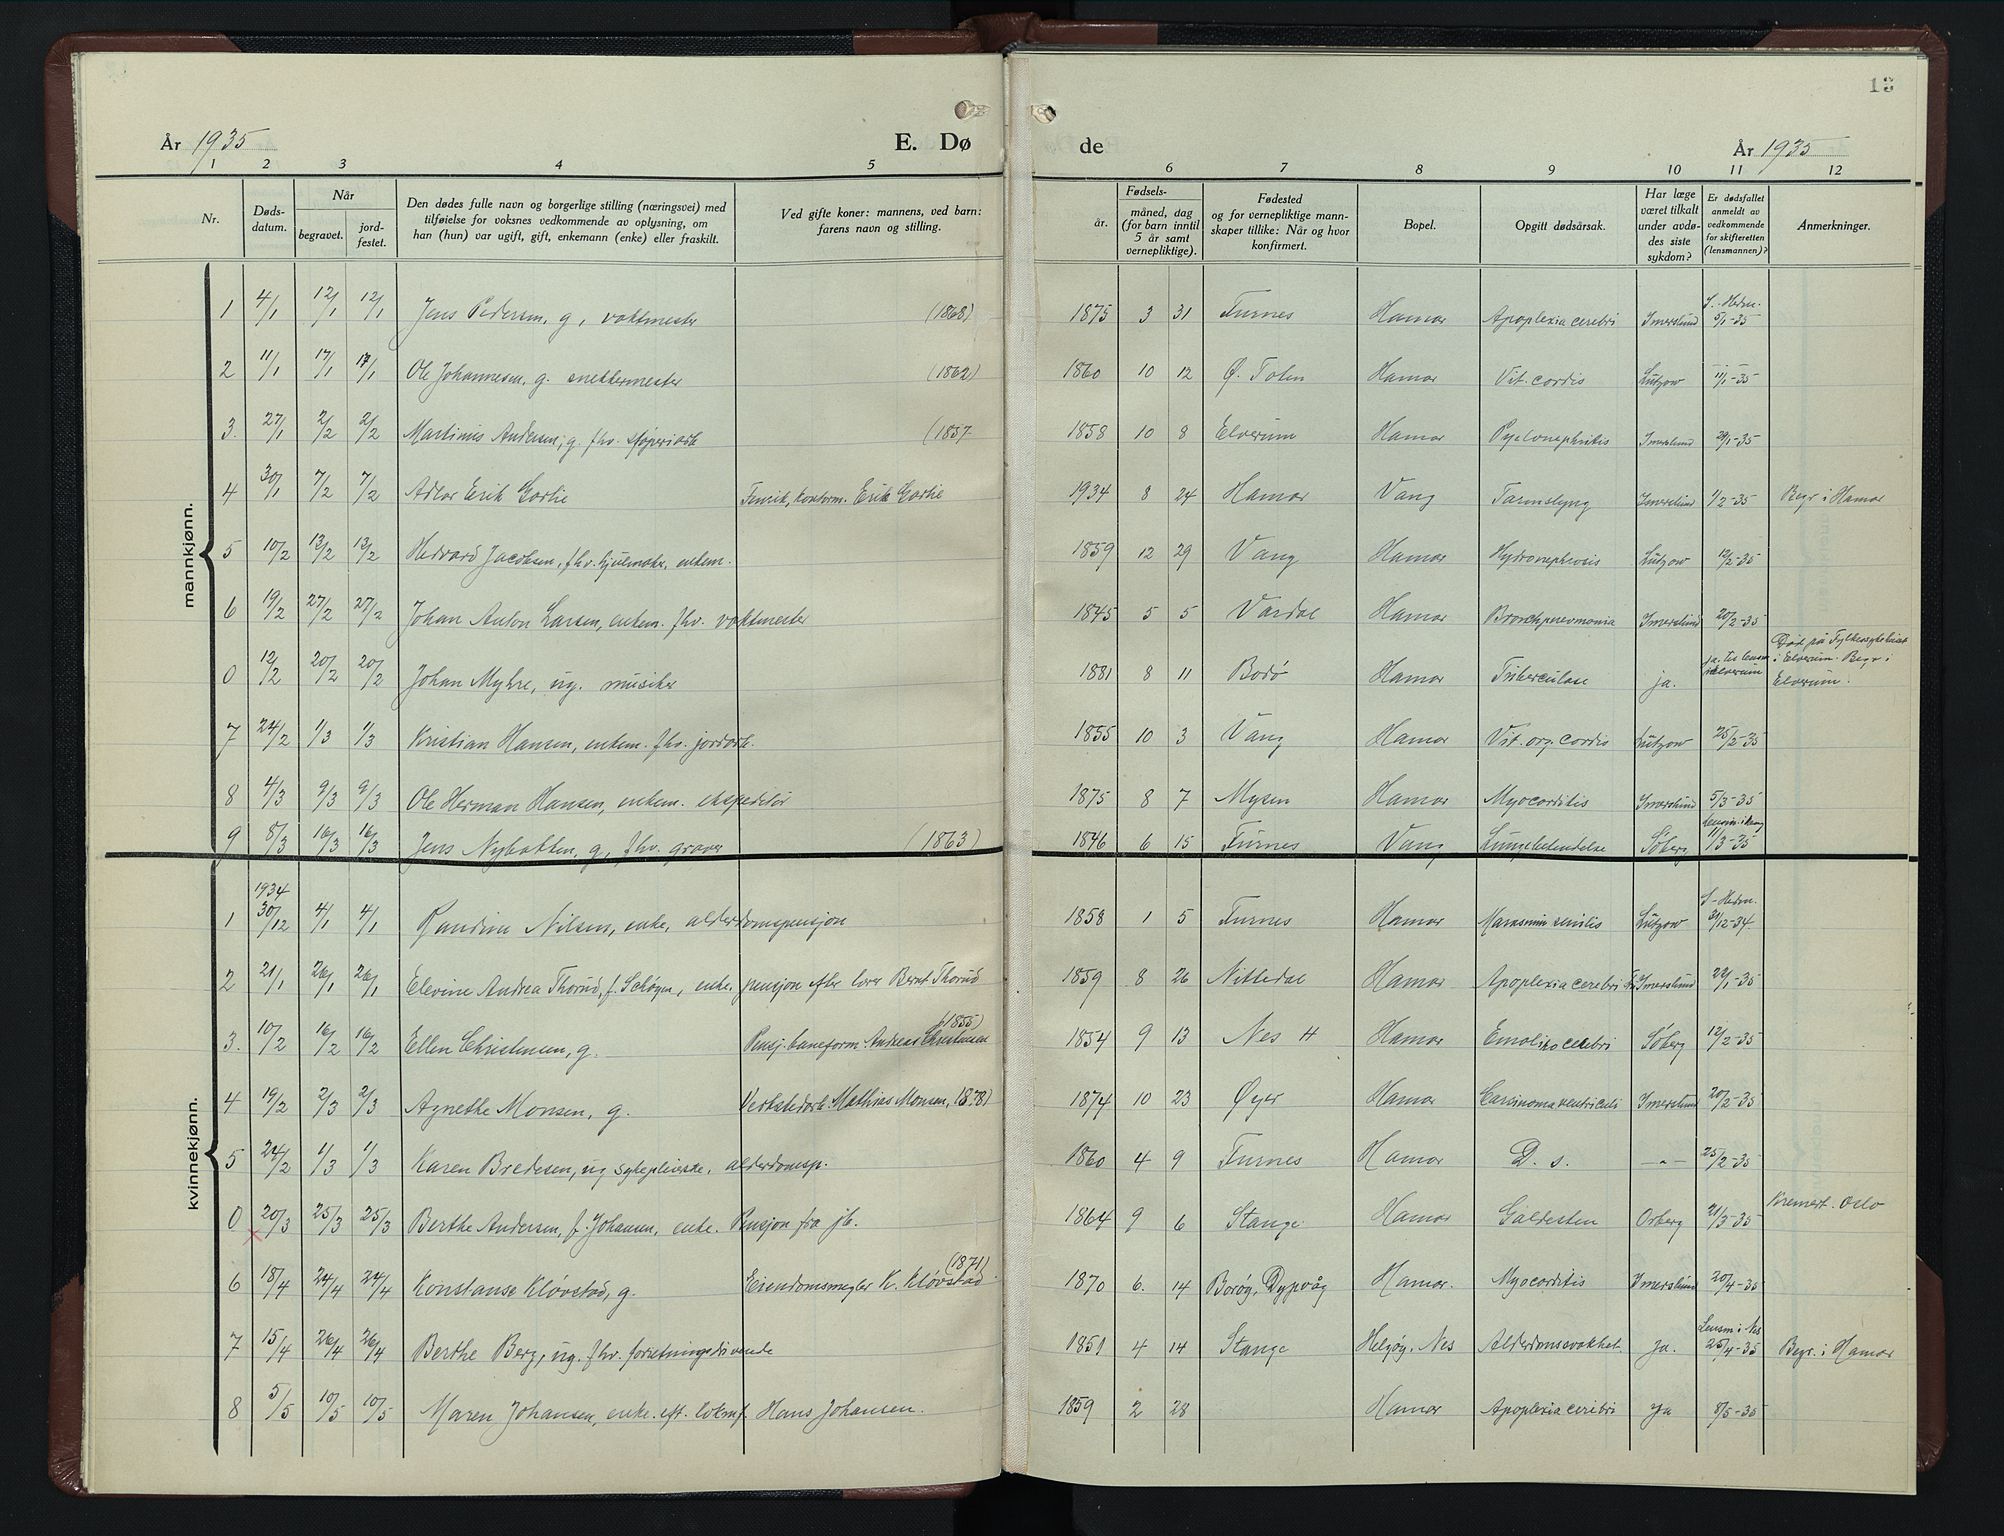 13
År 1935 E. Dø de År 1935
1 2 3 4 5 6 7 8 9 10 11 12
Nr. Døds-datum. Når begravet. jord-festet. Den dødes fulle navn og borgerlige stilling (næringsvei) med tilføielse for voksnes vedkommende av oplysning, om han (hun) var ugift, gift, enkemann (enke) eller fraskilt. Ved gifte koner: mannens, ved barn: farens navn og stilling. Fødsels- år. måned, dag (for barn inntil 5 år samt vernepliktige). Fødested og for vernepliktige mann-skaper tillike: Når og hvor konfirmert. Bopel. Opgitt dødsårsak. Har læge været tilkalt under avdø-des siste sykdom? Er dødsfallet anmeldt av vedkommende for skifteretten (lensmannen)? Anmerkninger.
mannkjønn.
1 4/1 12/1 12/1 Jens Pedersen, g, vaktmester (1868) 1875 3 31 Furnes Hamar Apoplexia cerebri Imerslund S. Hedm. 5/1-35
2 11/1 17/1 17/1 Ole Johannesen, g. snekkermester (1862) 1860 10 12 Ø. Toten Hamar Vit. cordis Lützow 11/1-35
3. 27/1 2/2 2/2 Martinus Andersen, g. fhv. støperiarb (1857 1858 10 8 Elverum Hamar Pyelonephritis Imerslund 29/1-35
4 30/1 7/2 7/2 Adlar Erik Gorlie Fenrik, kontorm. Erik Gorlie 1934 8 24 Hamar Vang Tarmslyng Imerslund 1/2-35 Begr. i Hamar
5 10/2 13/2 13/2 Hedvard Jacobsen, fhv. hjulmaker, enkem. 1859 12 29 Vang Hamar Hydronephrosis Lützow 12/2-35
6 19/2 27/2 27/2 Johan Anton Larsen, enkem. fhv. vaktmester 1845 5 5 Vardal Hamar Bronchpneumonia Imerslund 20/2-35
0 12/2 20/2 20/2 Johan Myhre, ug. musiker 1881 8 11 Bodø Hamar Tuberculose ja. ja. til lensm i Elverum Død på Fylkessykehuset i Elverum. Begr i Elverum.
7 24/2 1/3 1/3 Kristian Hansen, enkem. fhv. jordarb. 1855 10 3 Vang Hamar Vit. org. cordis Lützow 25/2-35
8 4/3 9/3 9/3 Ole Herman Hansen, enkem. ekspeditør 1875 8 7 Mysen Hamar Myocarditis Imerslund 5/3-35
9 8/3 16/3 16/3 Jens Nybakken, g, fhv. graver (1863) 1846 6 15 Furnes Vang Lungebetendelse Søberg Lensm. i Vang 11/3-35
kvinnekjønn.
1 1934 30/12 4/1 4/1 Randine Nilsen, enke, alderdomspensjon 1858 1 5 Furnes Hamar Marasmus senilis Lützow S-Hedm. 31/12-34
2 21/1 26/1 26/1 Elevine Andrea Thorud, f. Schøyen, enke. pensjon efter lærer Bernt Thorud 1859 8 26 Nittedal Hamar Apoplexia cerebri Fr Imerslund 22/1-35
3. 10/2 16/2 16/2 Ellen Christensen, g. Pensj. baneform. Andreas Christensen (1855) 1854 9 13 Nes H Hamar Emolitio cerebri Søberg 12/2-35
4 19/2 2/3 2/3 Agnethe Monsen, g. Verkstedarb. Mathias Monsen, 1878) 1874 10 23 Øyer Hamar Carcinoma ventriculi Imerslund 20/2-35
5 24/2 1/3 1/3 Karen Bredesen, ug sykepleierske, alderdomsp. 1860 4 9 Furnes Hamar D. s. -"- 25/2-35
0 20/3 25/3 25/3 Berthe Andersen, f. Johansen, enke. Pensjon fra jb. 1864 9 6 Stange Hamar Galdesten Orberg 21/3-35 Kremert. Oslo
6 18/4 24/4 24/4 Konstanse Kløvstad, g. Eiendomsmegler K. Kløvstad (1871) 1870 6. 14 Borøy, Dypvåg Hamar. Myocarditis Imerslund 20/4-35
7 15/4 26/4 26/4 Berthe Berg, ug. fhv. forretningsdrivende 1851 4 14 Stange Helgøy, Nes Alderdomssvakhet. ja. Lensm i Nes 25/4-35 Begr. i Hamar
8 5/5 10/5 10/5 Maren Johansen, enke. eft. lokmf. Hans Johansen. 1859 2 28 Hamar Apoplexia cerebri ja 8/5-35